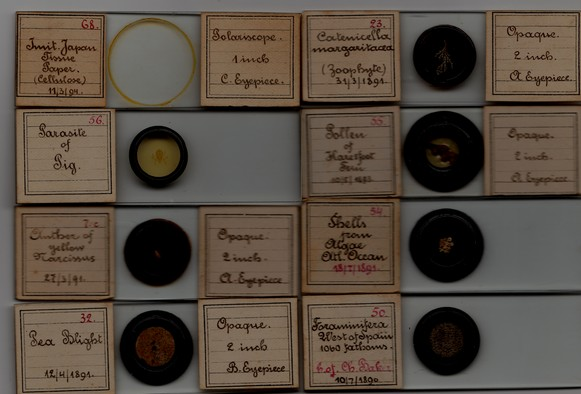 68.
Jmit. Japan
Tissue
Paper.
(Cellulose)
11/3/94.
Polariscope.
1 inch
C. Eyepiece.
23.
Catenicella
margaritacea
(Zoophyte)
31/3/1891.
Opaque.
2 inch.
A Eyepiece.
56.
Parasite
of
Pig.
55.
Pollen
of
Haresfoot
Fern
Opaque.
2 inch.
A Eyepiece
Anther of
yellow
Narcissus
27/3/91.
Opaque.
2 inch.
A Eyepiece
54.
Shells
from
Algae
Atl. Ocean
18/7/1891.
32.
Pea Blight
12/4/1891.
Opaque.
2 inch
B. Eyepiece
50.
Foraminifera
West of Spain
1060 fathoms.
10/7/1890.